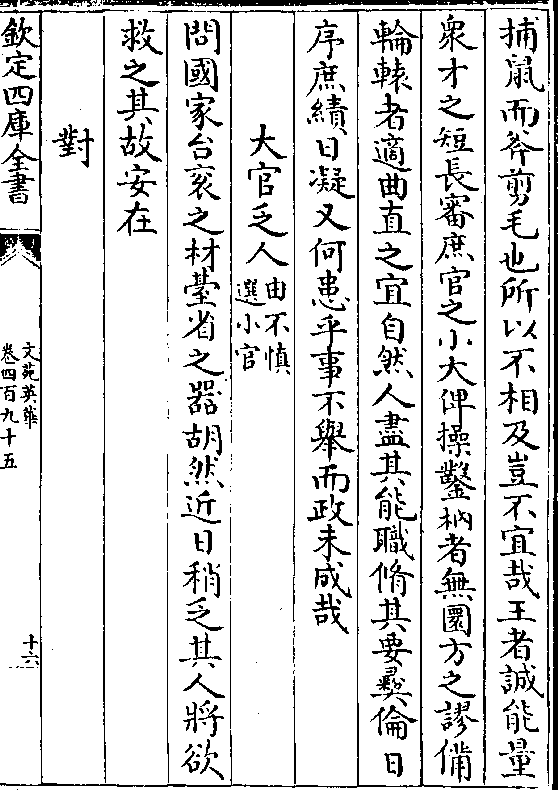 捕鼠而斧剪毛也所以不相及豈不宜哉王者誠能量
衆才之短長審庶官之小大俾操鑿枘者無圜方之謬備
輪轅者適曲直之宜自然人盡其能職脩其要彛倫日
序庶績日凝又何患乎事不舉而政未成哉
大官乏人由不慎選小官
問國家台衮之材臺省之器胡然近日稍乏其人將欲
救之其故安在
對
欽定四庫全書
文苑英華
卷四百九十五
十六